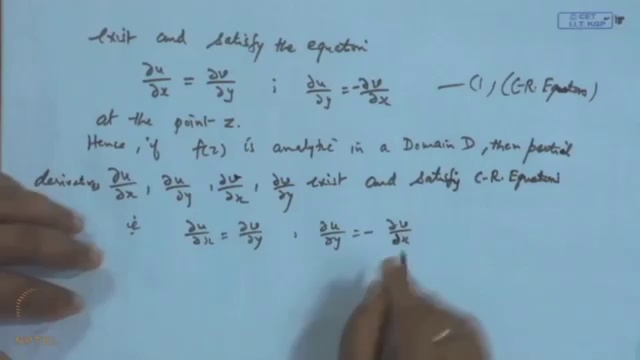 © CET
I.I.T. KGP
exist and satisfy the equation
∂u/∂x = ∂v/∂y ; ∂u/∂y = -∂v/∂x — (1) (C-R. Equations)
at the point z.
Hence, if f(z) is analytic in a Domain D, then partial
derivatives ∂u/∂x, ∂u/∂y, ∂v/∂x, ∂v/∂y exist and satisfy C-R. Equations
ie ∂u/∂x = ∂v/∂y , ∂u/∂y = - ∂v/∂x
NPTEL